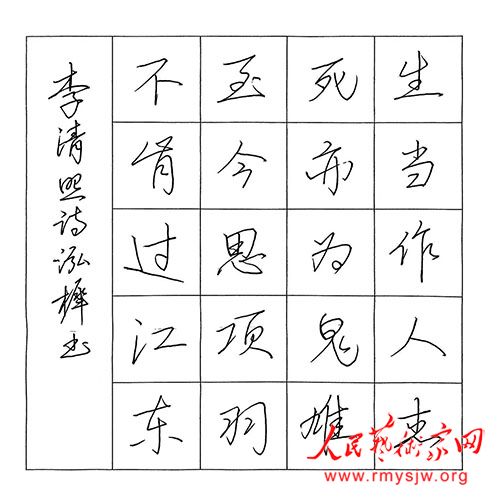 生当作人杰
死亦为鬼雄
至今思项羽
不肯过江东
李清照诗泓樺书
人民藝術家网
www.rmysjw.org